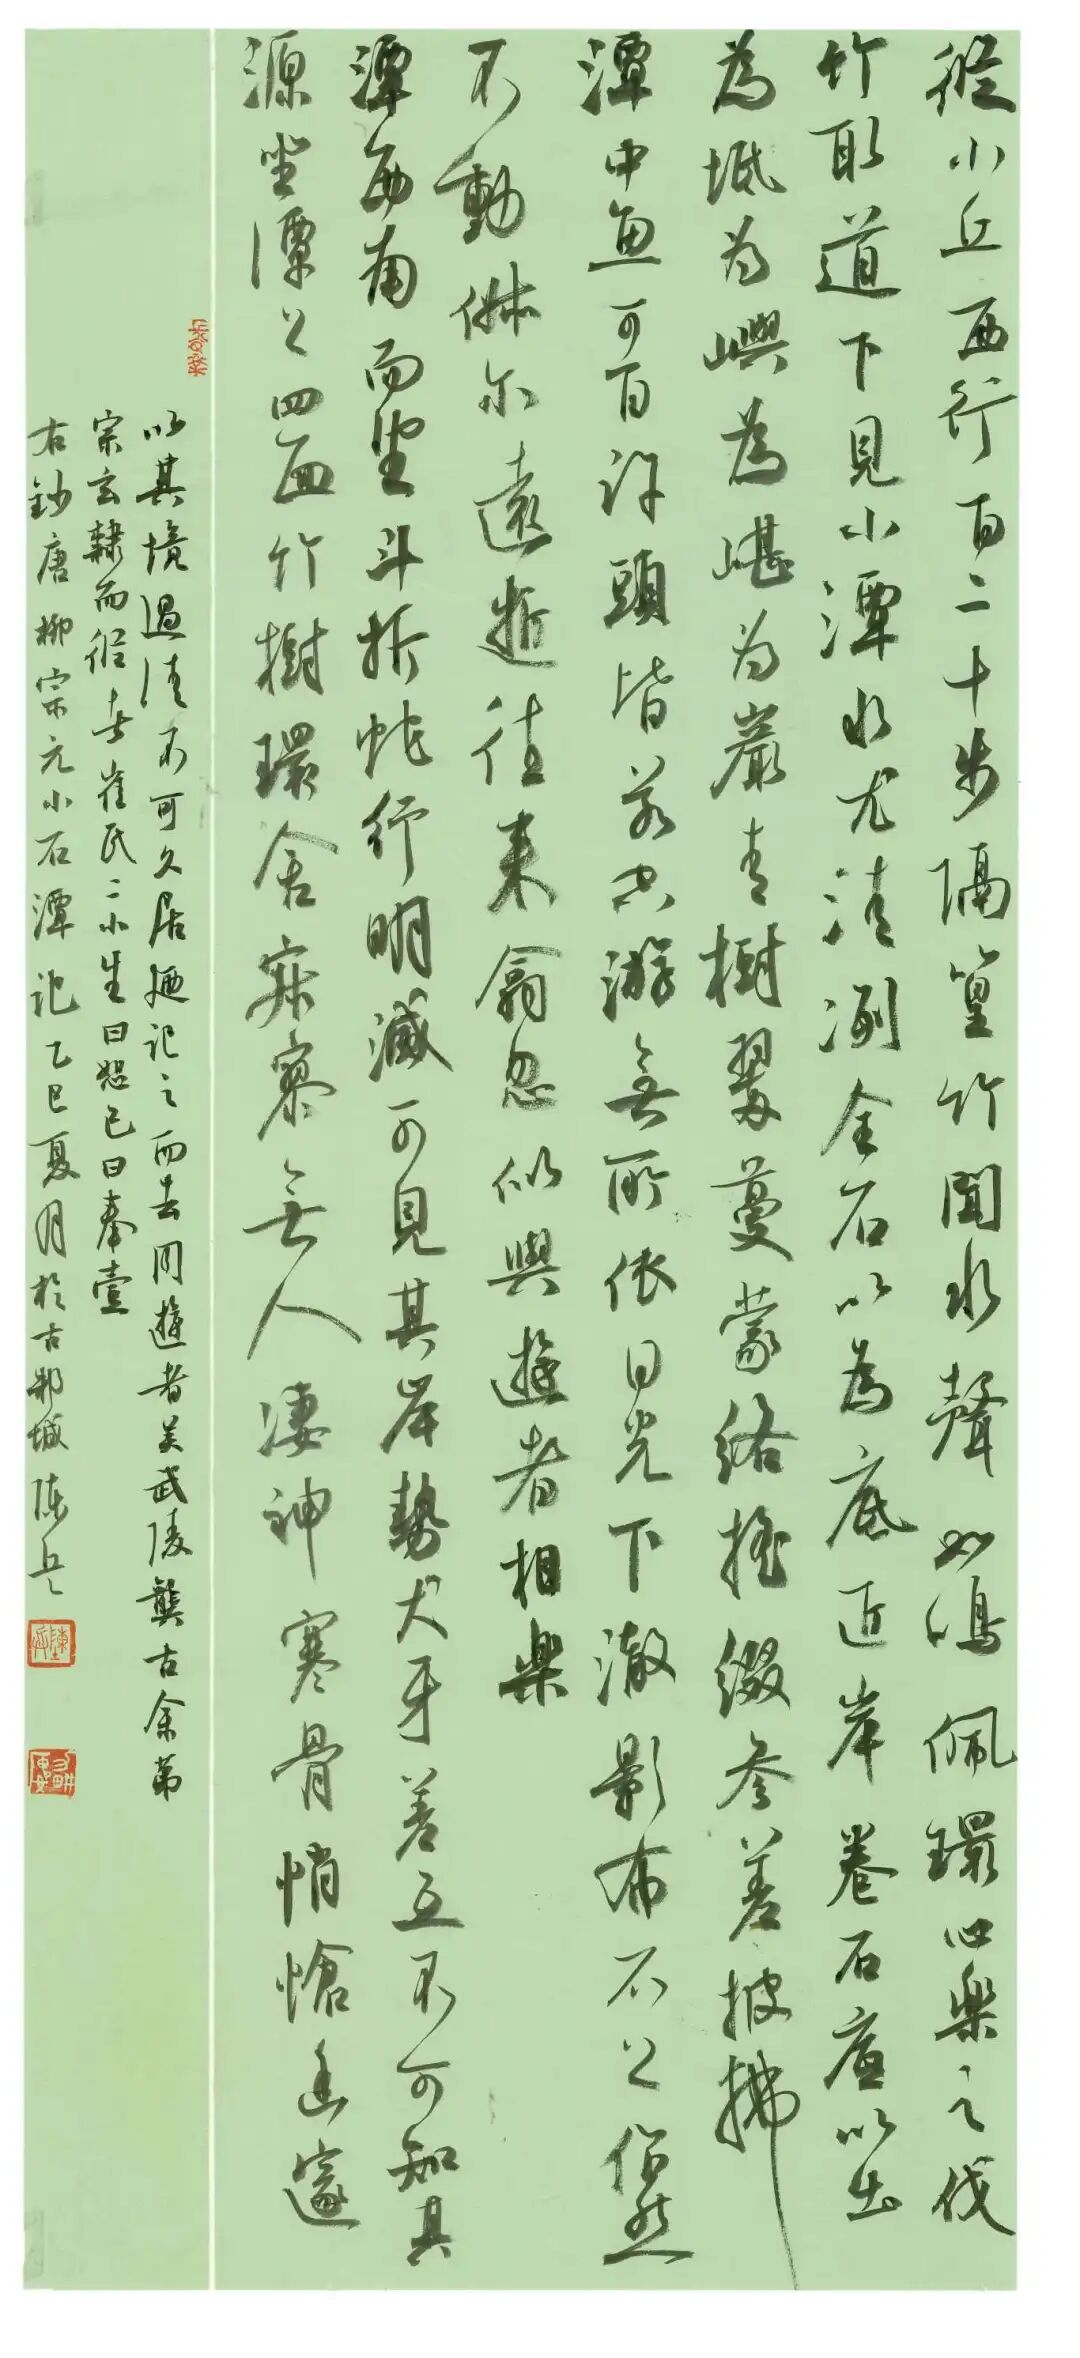 從小丘西行百二十步隔篁竹聞水聲如鳴佩環心樂之伐
竹取道下見小潭水尤清洌全石以為底近岸卷石底以出
為坻為嶼為嵁為巖青樹翠蔓蒙絡搖綴參差披拂
潭中魚可百許頭皆若空游無所依日光下澈影布石上佁然
不動俶尔遠逝往來翕忽似與遊者相樂
潭西南而望斗折蛇行明滅可見其岸勢犬牙差互不可知其
源坐潭上四面竹樹環合寂寥無人淒神寒骨悄愴幽邃
以其境過清不可久居迺記之而去同遊者吴武陵龔古余弟
宗玄隸而從者崔氏二小生曰恕己曰奉壹
右鈔唐柳宗元小石潭記乙巳夏月於古邾城陳兵
陳兵